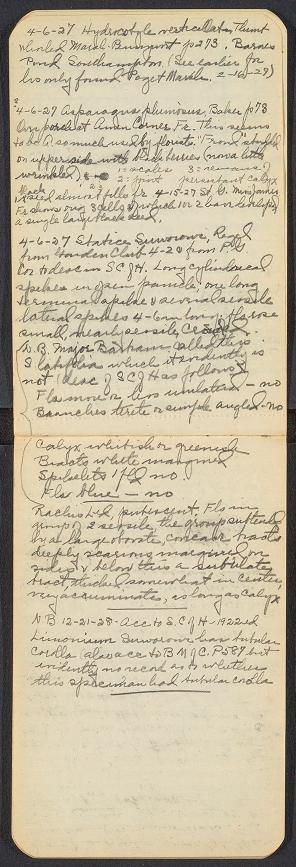 4-6-27 Hydrocotyle verticillata Thunb
Whorled Marsh-Pennywort p273, Barnes
Pond Southampton. (See earlier for
his only found Paget Marsh. 2-16-27)
4-6-27 Asparagus plumosus, Baker p73
at Amen Corner, Fr. This seems
to be A so much used by florists. "Frond"
on upper side with berries (now a little
wrinkled),
1 = scales 3 = remains of
2 = persistent calyx
black
seed almost fills fr. 4-15-27 St. G.
Fr shows only 3 cells of which 1 or 2 have developed
a single large black seed.
4-6-27 Statice Suworowi, Regel
from Garden Club 4-2
Cor to desc in SC of H. Long cylindrical
spikes in open panicle, one long
terminal spike & several sessile
lateral spikes 4-6 in long, fls rose
small, nearly sessile, Crowded.
N.B. Major Barham called this
S. which it evidently is
not (desc of SC of H as follows
Fls more or less unilateral - no
Branches terete or simple angled - no
Calyx whitish or greenish
Bracts white margined
Spikelets 1 fld no
Fls blue - no
Rachis puberscent, Fls in
group of 2 sessile, the group subtended
by a large obovate, concave bract
deeply scarious margined on
sides & below this a subulate
bract, attached somewhat in center,
very accuminate, as long as Calyx
NB 12-21-28 - Acc to S.C of H - 1922 ed
Limonium Suworowi has tubular
corolla (also acc to B M of C. P587 but
evidently no record as to whether
this specimen had tubular corolla